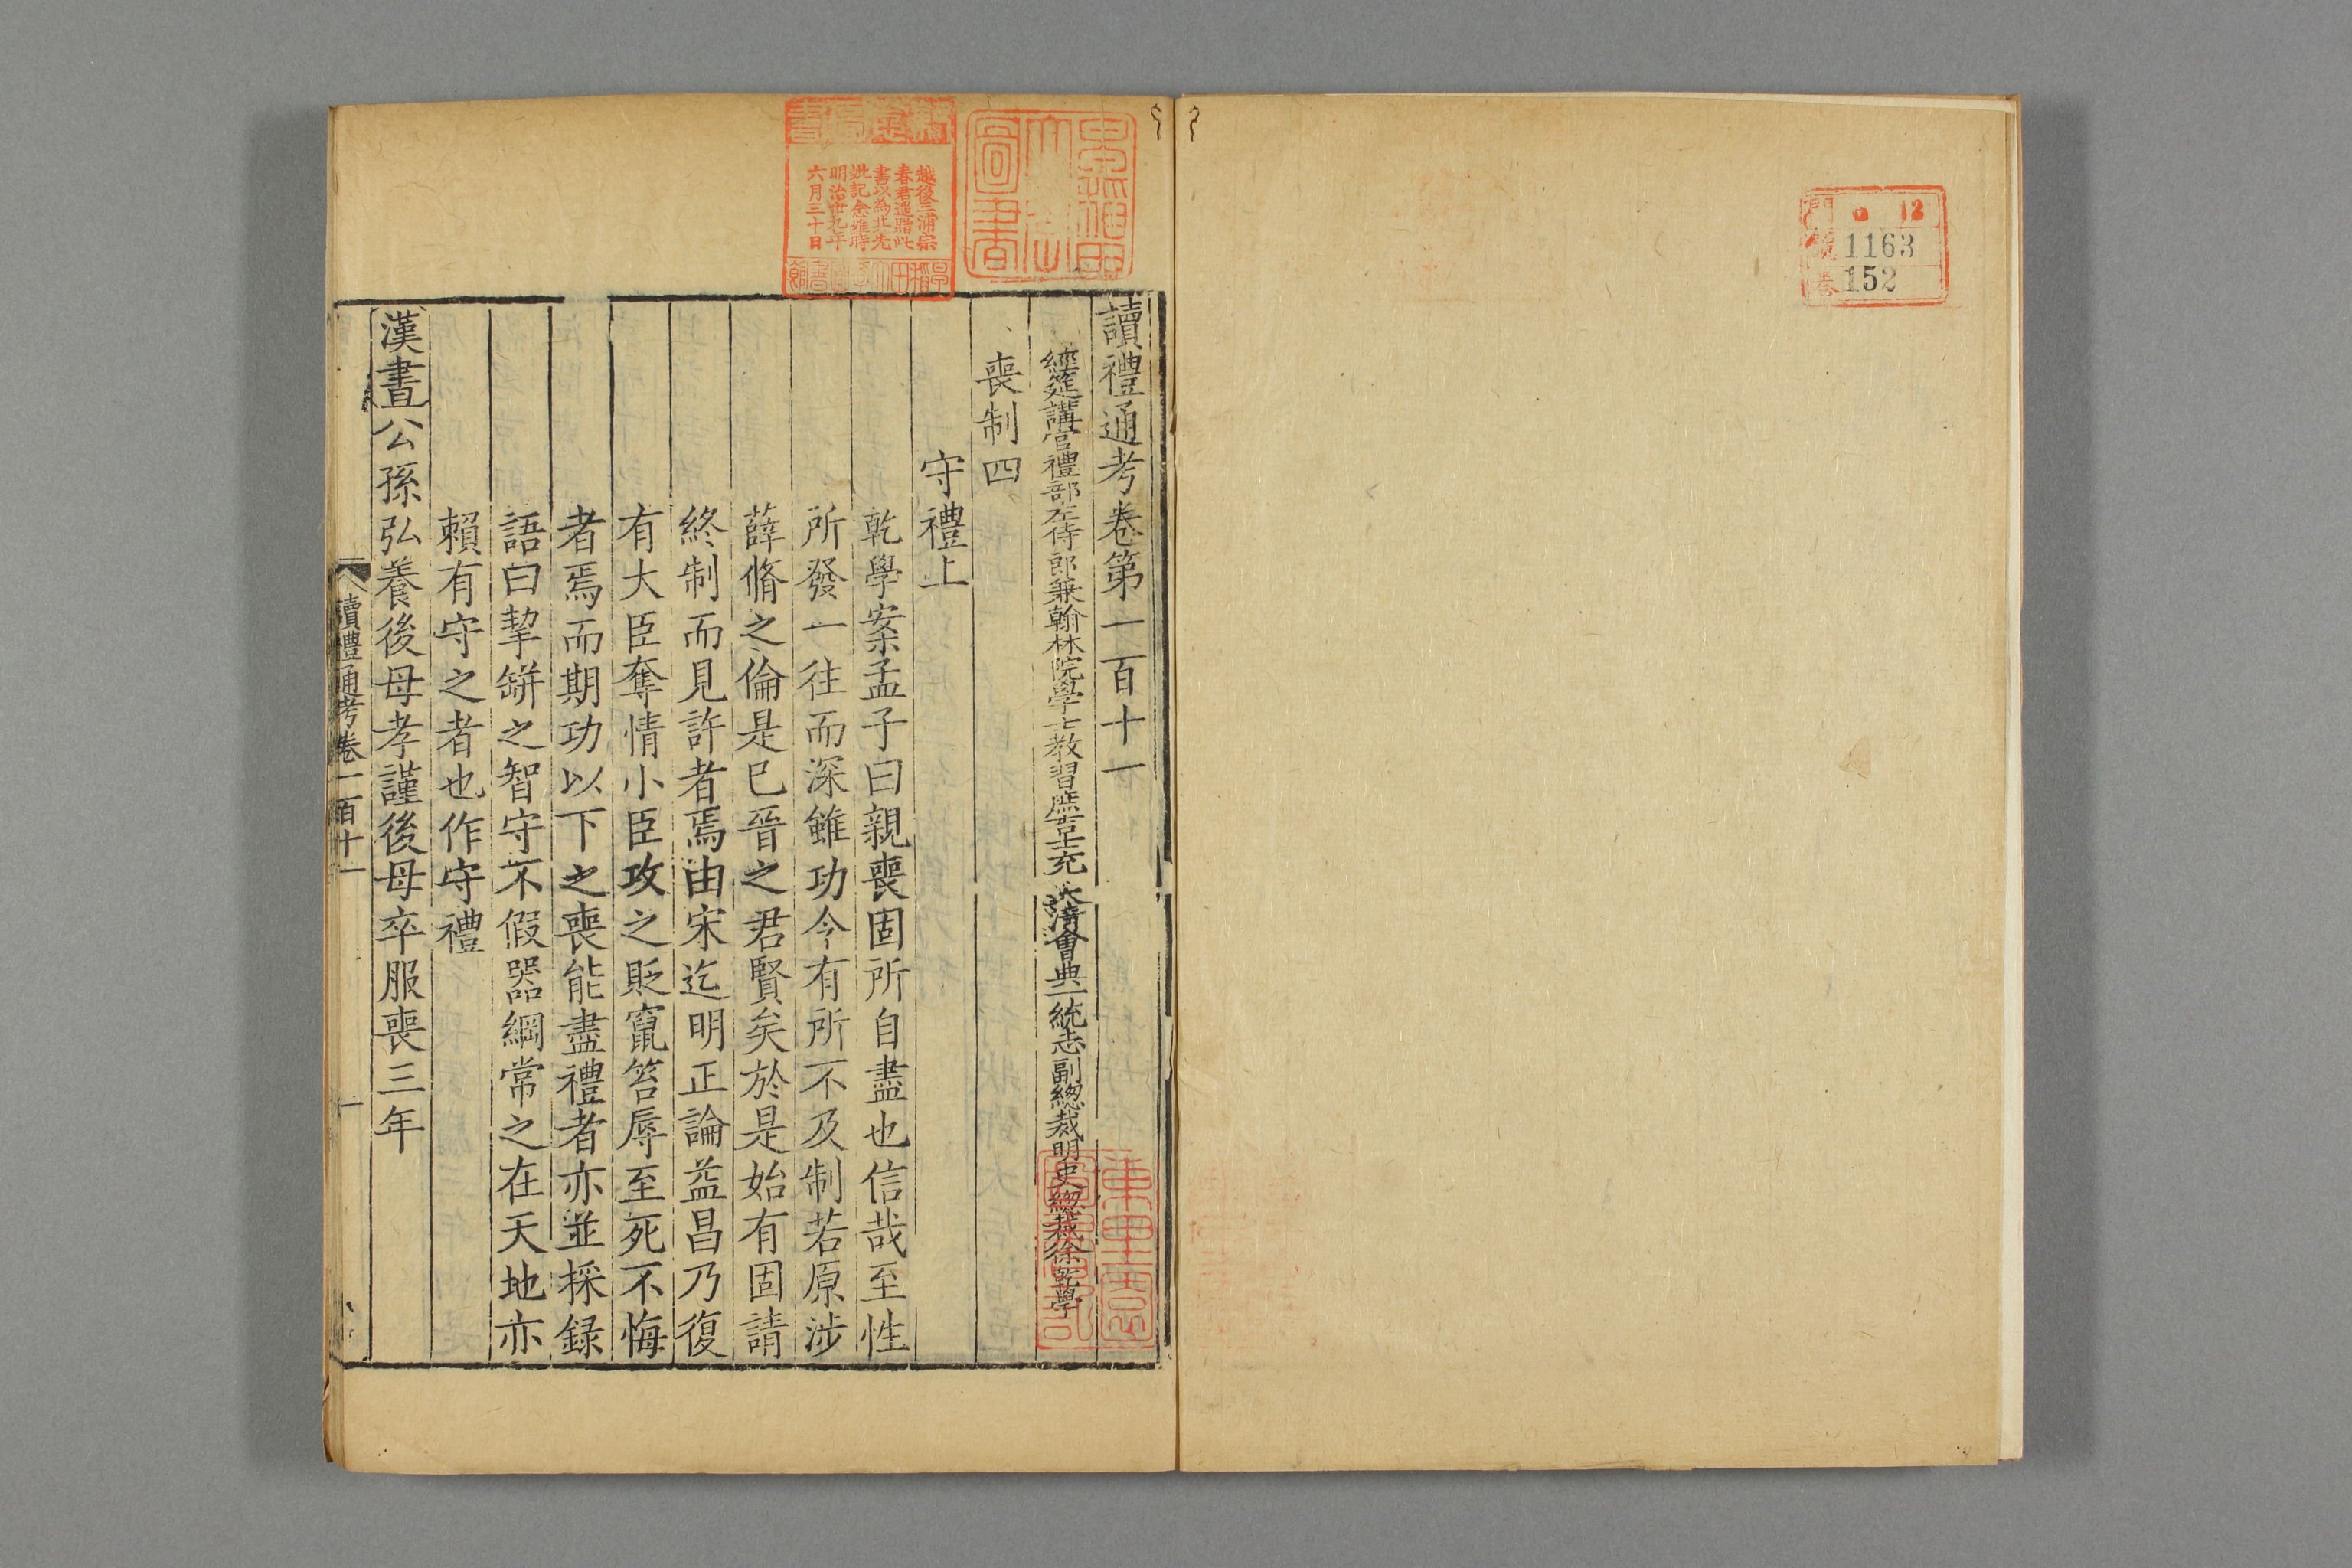 讀禮通考卷第一百十一
經筵講官禮部左侍郎兼翰林院學士教習庶吉士充 大清會典一統志副總裁明史總裁徐乾學
喪制四
守禮上
乾學案孟子曰親喪固所自盡也信哉至性
所發一往而深雖功今有所不及制若原涉
薛脩之倫是已晉之君賢矣於是始有固請
終制而見許者焉由宋迄明正論益昌乃復
有大臣奪情小臣攻之貶竄笞辱至死不悔
者焉而期功以下之喪能盡禮者亦並採録
語曰挈缾之智守不假器綱常之在天地亦
賴有守之者也作守禮
漢書公孫弘養後母孝謹後母卒服喪三年
讀禮通考卷一百十一
一
越後三浦宗
春君遥贈此
書以為北先
妣記念維時
明治卅九年
六月三十日
圖書
門 12
號 1163
卷 152